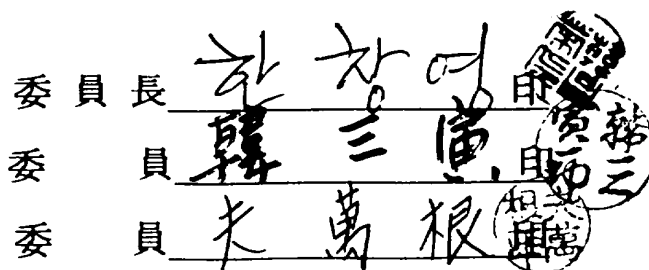 委員長 한창영 印
委員 韓三寅 印
委員 夫萬根 印